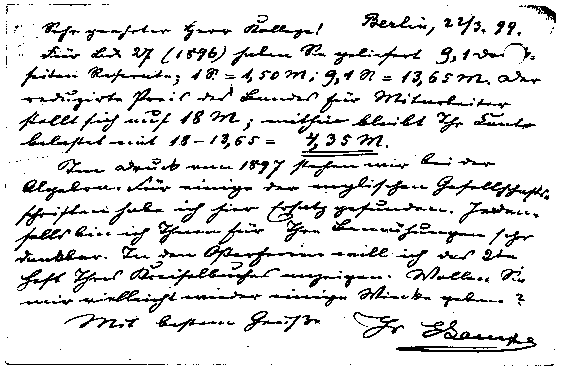 Berlin, 22/3. 99.
Sehr geehrter Herr Kollege!
Für Bd. 27 (1896) haben Sie geliefert 9,1 der
seiten Referate; 1 S. = 1,50 M; 9,1 S = 13,65 M. Der
reduzirte Preis des Bandes für Mitarbeiter
stellt sich auf 18 M; mithin bleibt Ihr Conto
belastet mit 18 - 13,65 = 4,35 M.
Im Druck von 1897 stehen wir bei der
Algebra. Für einige der englischen Gesellschafts-
schriften habe ich hier Ersatz gefunden. Jeden-
falls bin ich Ihnen für Ihre Bemühungen sehr
dankbar. In den Osterferien will ich das 2te
Heft Ihres Kreiselbuches anzeigen. Wollen Sie
mir vielleicht wieder einige Winke geben?
Mit bestem Gruße Ihr E Lampe